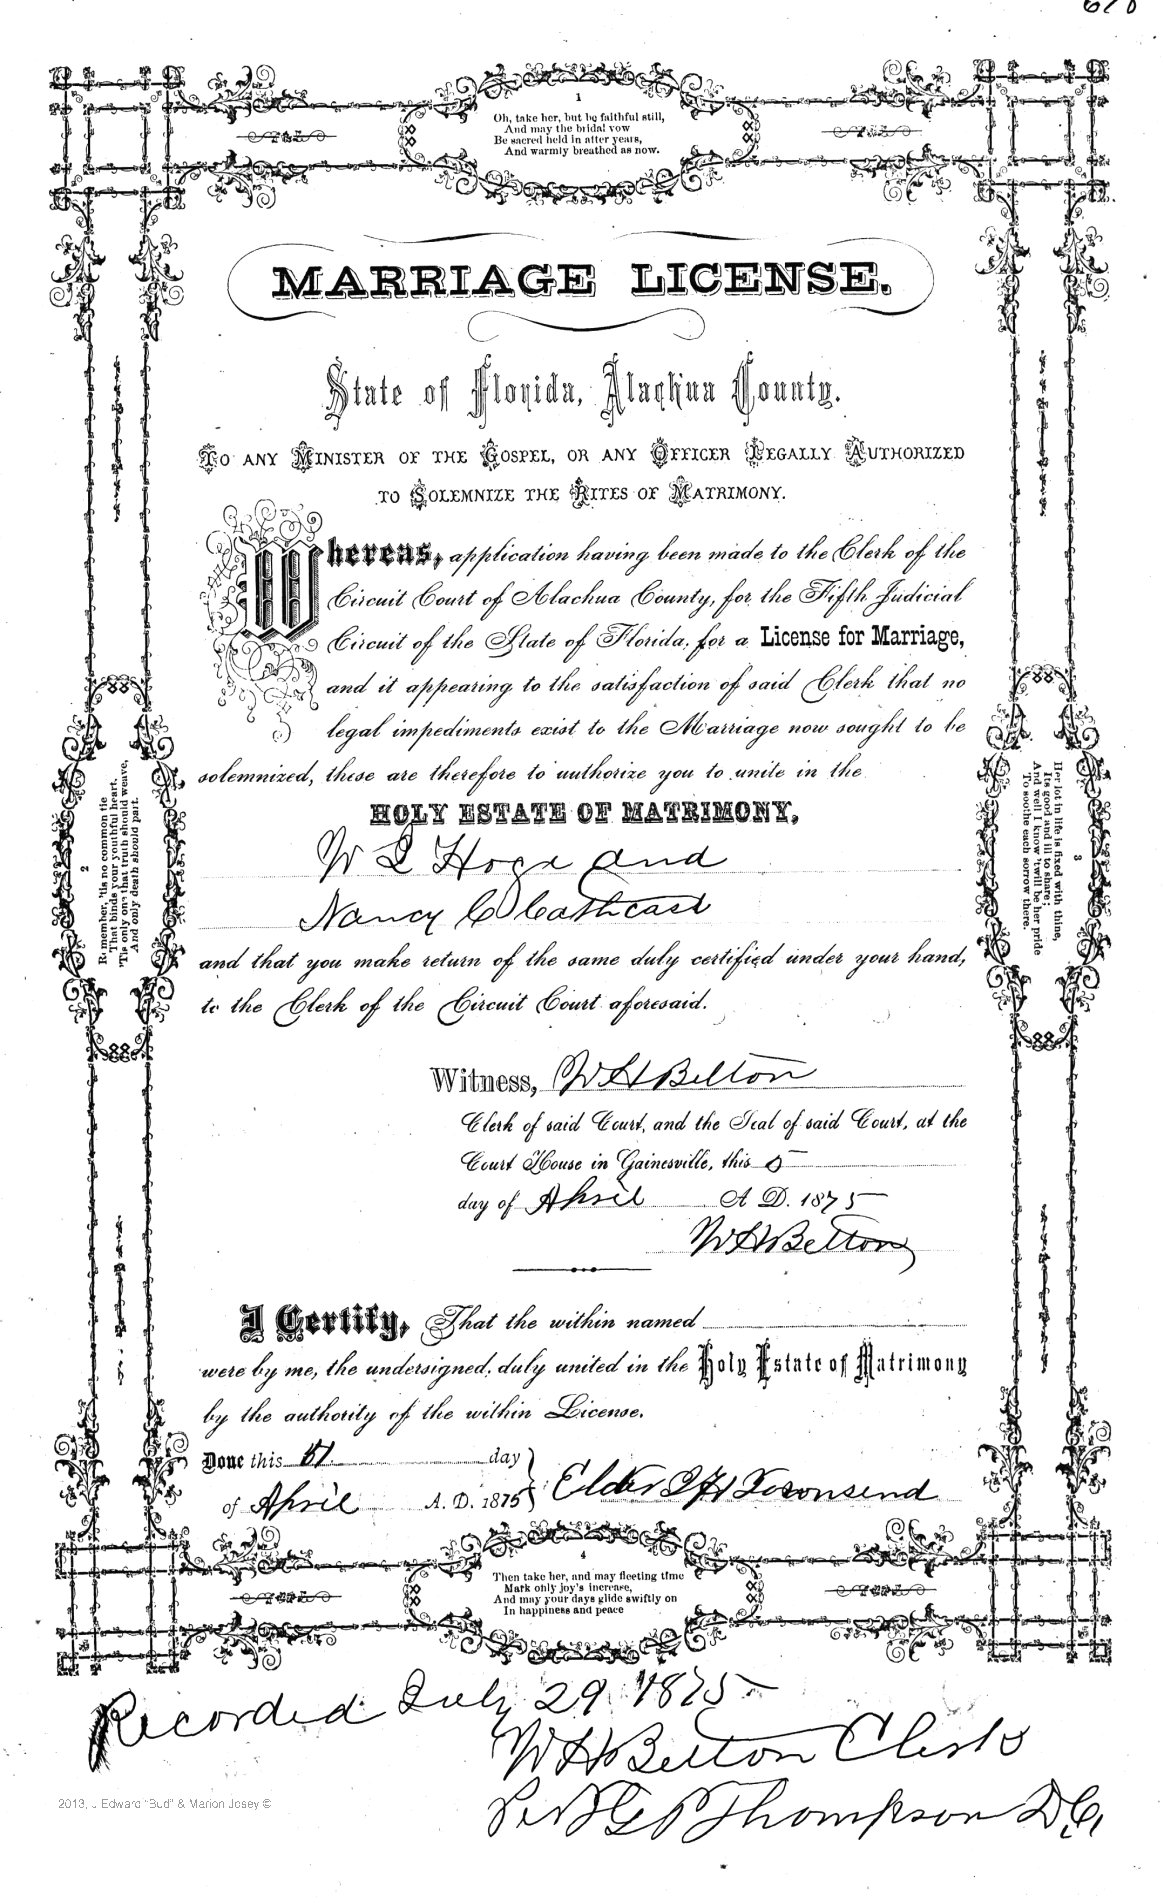 1
Oh, take her, but be faithful still,
And may the bridal vow
Be sacred held in after years,
And warmly breathed as now.
MARRIAGE LICENSE.
State of Florida, Alachua County.
TO ANY MINISTER OF THE GOSPEL, OR ANY OFFICER LEGALLY AUTHORIZED
TO SOLEMNIZE THE RITES OF MATRIMONY.
Whereas, application having been made to the Clerk of the
Circuit Court of Alachua County, for the Fifth Judicial
Circuit of the State of Florida, for a License for Marriage,
and it appearing to the satisfaction of said Clerk that no
legal impediments exist to the Marriage now sought to be
solemnized, these are therefore to authorize you to unite in the
HOLY ESTATE OF MATRIMONY,
W L Hogx and
Nancy C Cathcart
and that you make return of the same duly certified under your hand,
to the Clerk of the Circuit Court aforesaid.
Witness, W H Belton
Clerk of said Court, and the Seal of said Court, at the
Court House in Gainesville, this 5
day of April A D. 1875
W H Belton
I Certify, That the within named
were by me, the undersigned, duly united in the Holy Estate of Matrimony
by the authority of the within License.
Done this day
of April A. D. 1875
Elder Townsend
2
Remember, 'tis no common tie
That binds your youthful heart,
'Tis only one that truth should weave,
And only death should part.
3
Her lot in life is fixed with thine,
Its good and ill to share;
And well I know 'twill be her pride
To soothe each sorrow there.
4
Then take her, and may fleeting time
Mark only joy's increase,
And may your days glide swiftly on
In happiness and peace
Recorded July 29 1875
W H Belton Clerk
Per Thompson D.C.
2013, J Edward "Bud" & Marion Josey ©